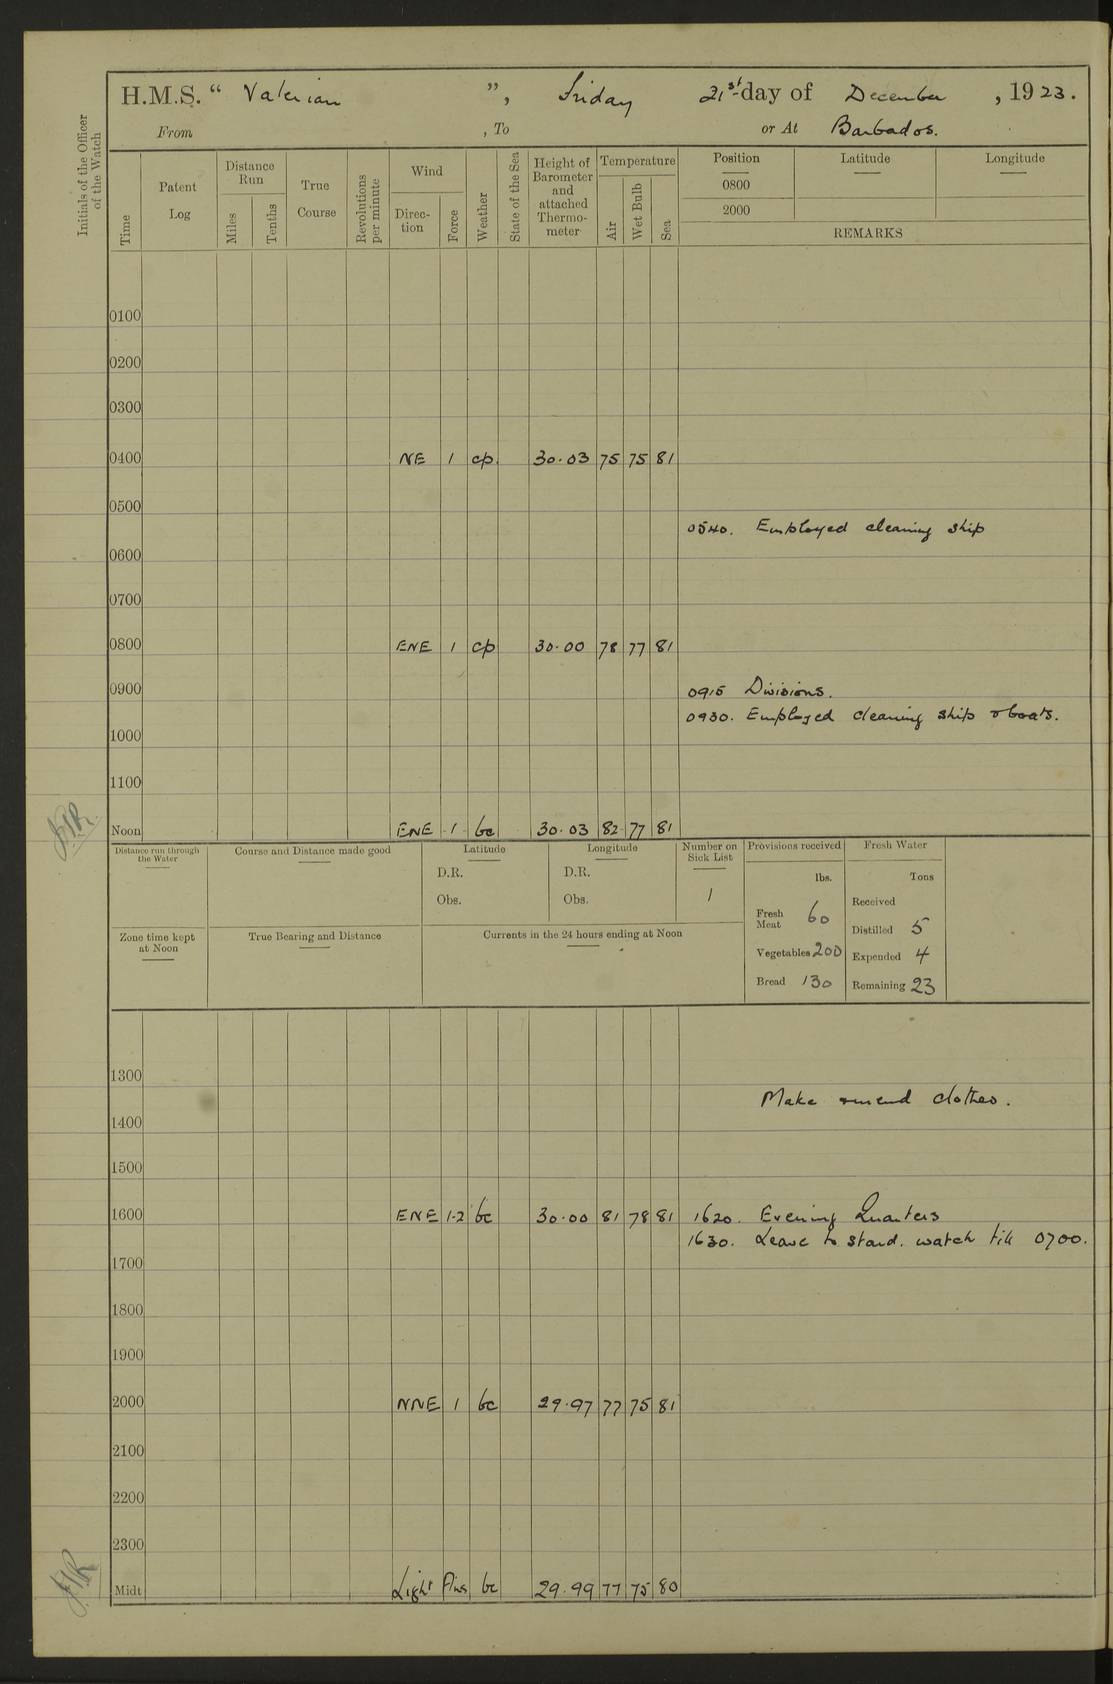 H.M.S. “ Valerian ”, Friday 21st day of December, 1923.
From , To or At Barbados.
Initials of the Officer of the Watch
Time
Patent Log
Distance Run
Miles
Tenths
True Course
Revolutions per minute
Wind
Direc-tion
Force
Weather
State of the Sea
Height of Barometer and attached Thermo-meter
Temperature
Air
Wet Bulb
Sea
Position Latitude Longitude
0800
2000
REMARKS
0100
0200
0300
0400 NE 1 cp. 30.03 75 75 81
0500
0540. Employed cleaning ship
0600
0700
0800 ENE 1 cp 30.00 78 77 81
0900 0915 Divisions.
0930. Employed cleaning ship & boats.
1000
1100
Noon ENE 1 bc 30.03 82 77 81
Distance run through the Water
Course and Distance made good
Latitude
D.R.
Obs.
Longitude
D.R.
Obs.
Number on Sick List
1
Provisions received
lbs.
Fresh Meat 60
Vegetables 200
Bread 130
Fresh Water
Tons
Received
Distilled 5
Expended 4
Remaining 23
Zone time kept at Noon
True Bearing and Distance
Currents in the 24 hours ending at Noon
1300
Make & mend clothes.
1400
1500
1600 ENE 1-2 bc 30.00 81 78 81 1620. Evening Quarters
1630. Leave to stard. watch till 0700.
1700
1800
1900
2000 NNE 1 bc 29.97 77 75 81
2100
2200
2300
Midt Light Airs bc 29.99 77 75 80